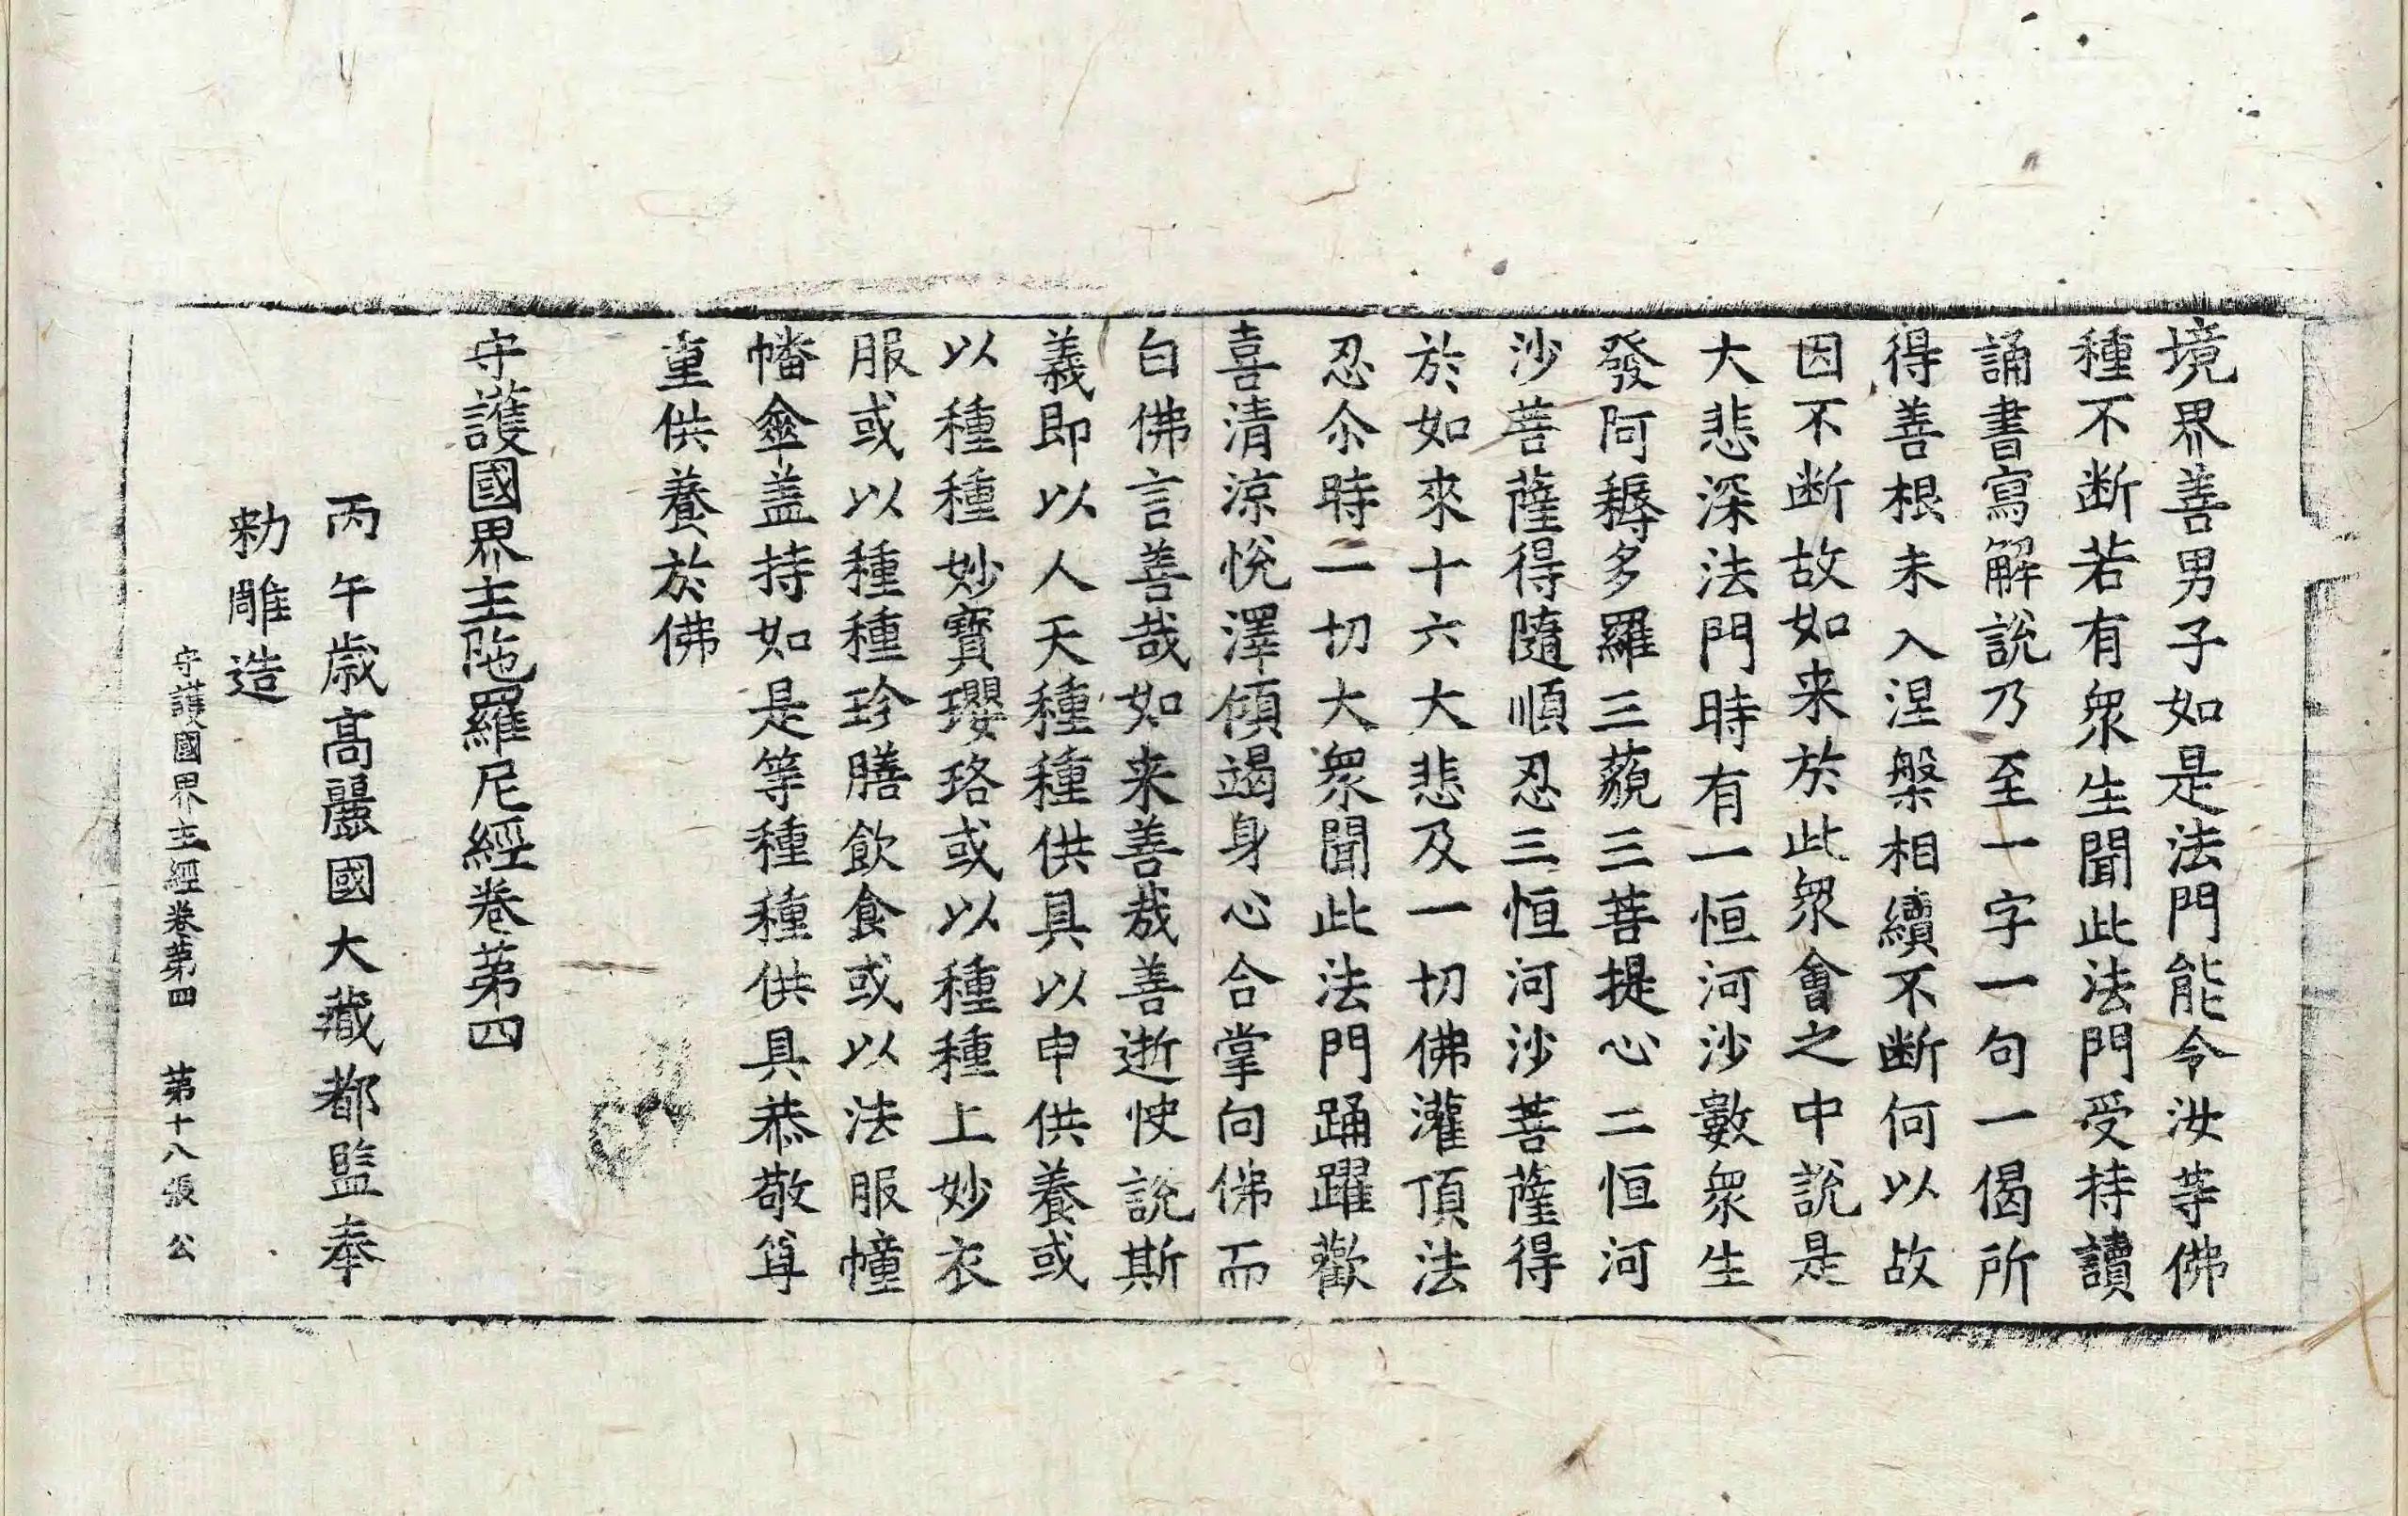 境界善男子如是法門能令汝等佛
種不断若有衆生聞此法門受持讀
誦書寫解說乃至一字一句一偈所
得善根未入涅槃相續不断何以故
因不断故如来於此衆會之中說是
大悲深法門時有一恒河沙數衆生
發阿耨多羅三藐三菩提心二恒河
沙菩薩得隨順忍三恒河沙菩薩得
於如來十六大悲及一切佛灌頂法
忍尒時一切大衆聞此法門踊躍歡
喜清涼悅澤傾竭身心合掌向佛而
白佛言善哉如来善哉善逝快說斯
義即以人天種種供具以申供養或
以種種妙寶瓔珞或以種種上妙衣
服或以種種珍膳飲食或以法服幢
幡傘盖持如是等種種供具恭敬尊
重供養於佛
守護國界主陁羅尼經卷第四
丙午歲高麗國大藏都監奉
勑雕造
守護國界主經卷第四 第十八張 公